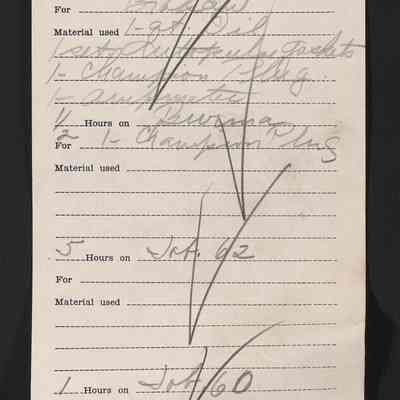 For
Material used 1-qt. Oil
1 set gaskets
1- Champion Plug.
1-
1/2 Hours on
For 1- Champion Plug
Material used
5 Hours on Job. 62
For
Material used
1 Hours on Job 60